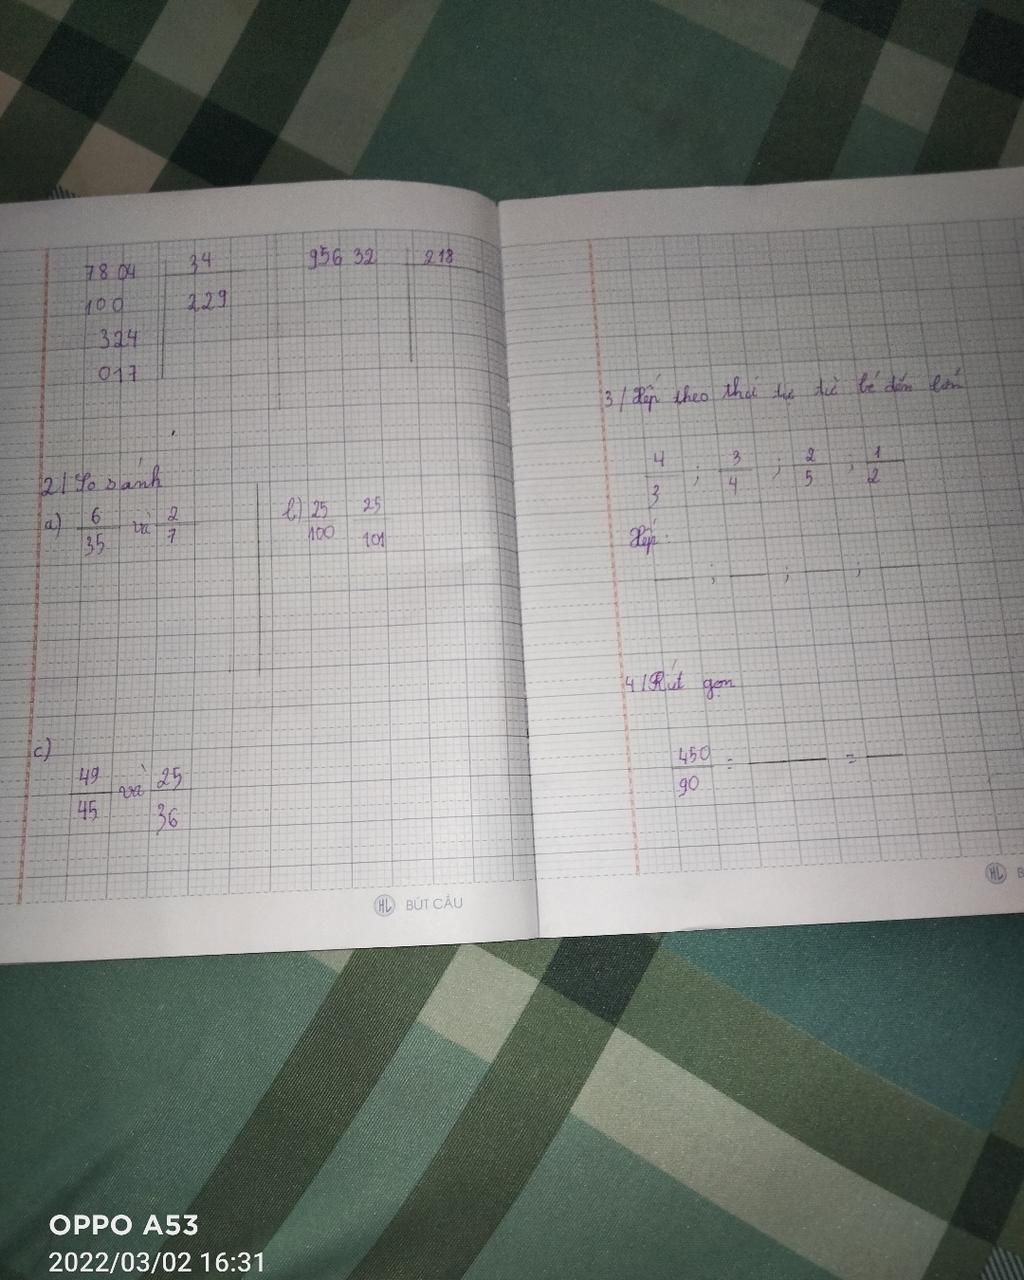 7804 34 95632 218
100 229
324
017
2/ So sánh
a) 6/35 và 2/7 b) 25/100 25/101
c) 49/45 và 25/36
HL BÚT CẦU
3/ Xếp theo thứ tự từ bé đến lớn
4/3 ; 3/4 ; 2/5 ; 1/2
Xếp:
; ; ;
4/ Rút gọn
450/90 = =
HL B
OPPO A53
2022/03/02 16:31